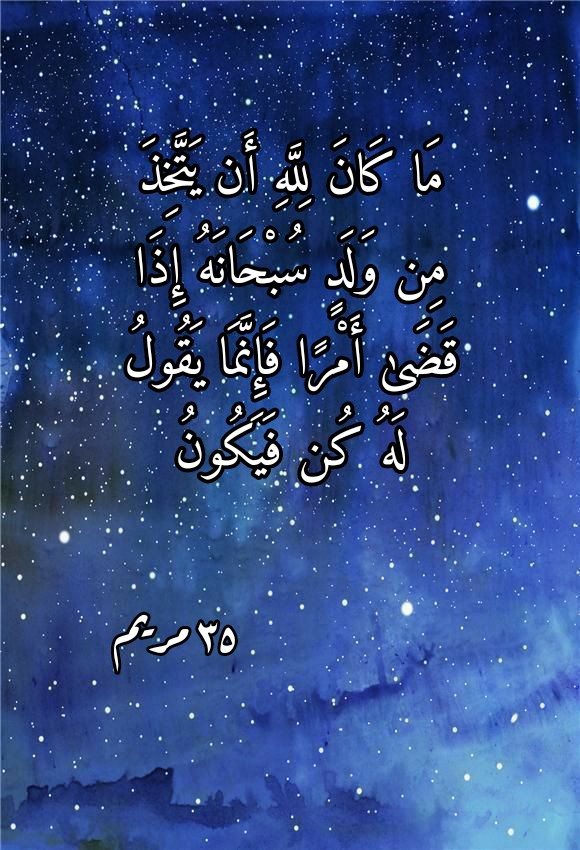 مَا كَانَ لِلَّهِ أَن يَتَّخِذَ
مِن وَلَدٍ سُبْحَانَهُ إِذَا
قَضَىٰ أَمْرًا فَإِنَّمَا يَقُولُ
لَهُ كُن فَيَكُونُ
٣٥ مريم